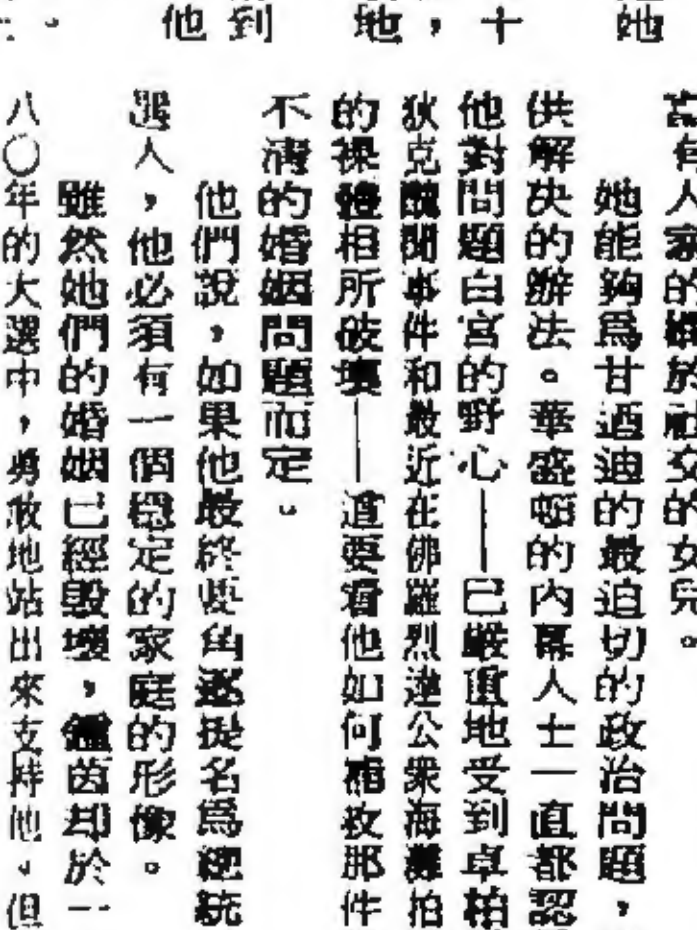 她
地，十
他到
富有人家的嫻於社交的女兒。
她能夠爲甘迺迪的最迫切的政治問題，
供解决的辦法。華盛頓的內幕人士一直都認
他對問題白宮的野心——已嚴重地受到卓柏
狄克醜聞事件和最近在佛羅烈達公衆海灘拍
的裸體相所破壞——這要看他如何補救那件
不清的婚姻問題而定。
他們說，如果他最終要角逐提名爲總統
選人，他必須有一個穩定的家庭的形像。
雖然她們的婚姻已經毀壞，鍾茵却於一
八〇年的大選中，勇敢地站出來支持他。但